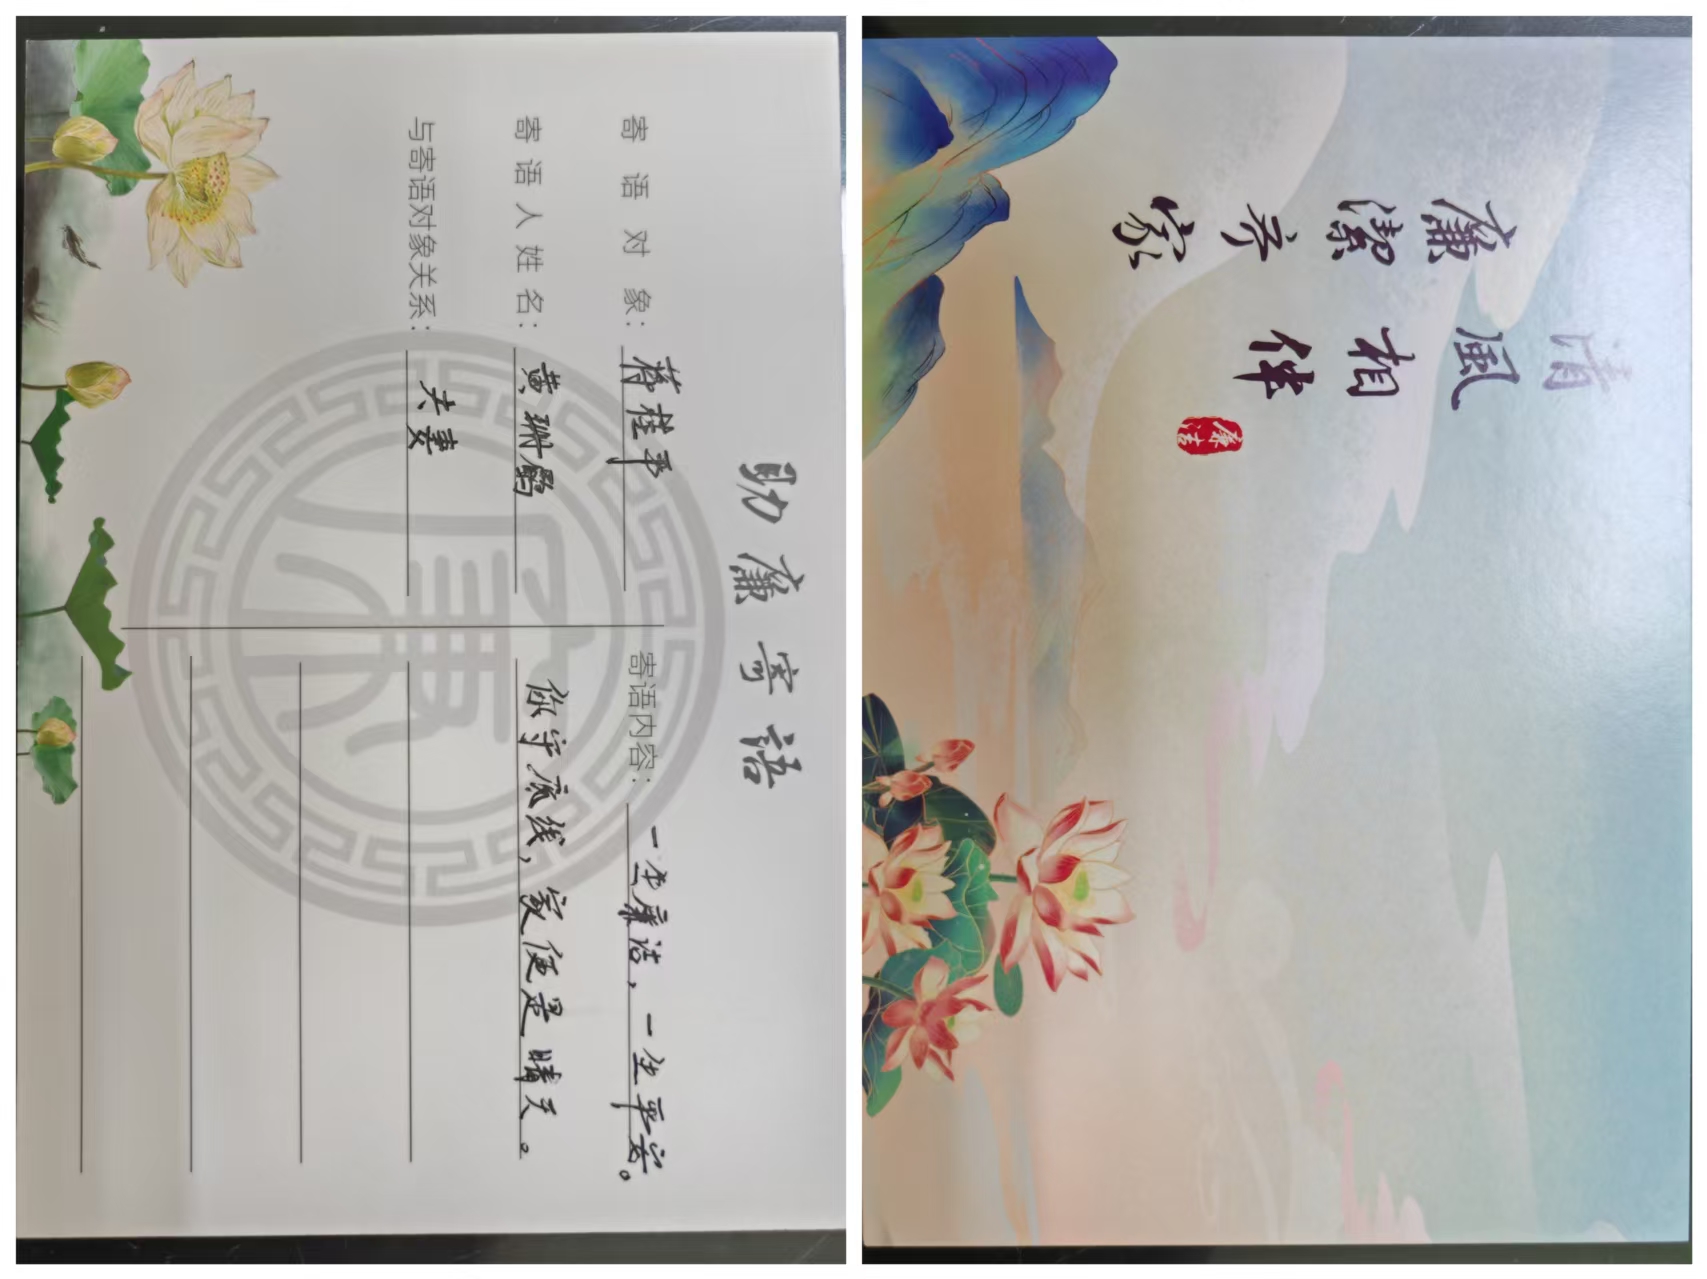 助廉寄语
寄语对象：蒋桂平
寄语人姓名：黄珊鹛
与寄语对象关系：夫妻
寄语内容：一生廉洁，一生平安。
你守底线，家便是晴天。
廉
清風相伴
廉潔齐家
廉洁